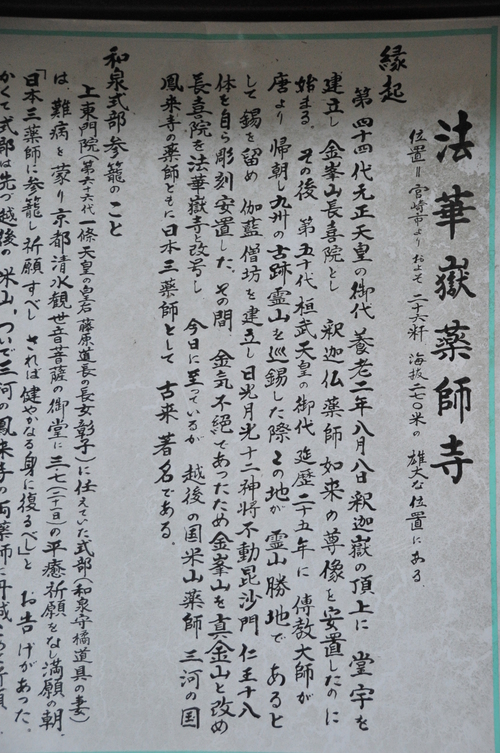 法華嶽薬師寺
位置＝宮崎市より およそ 二十六粁 海抜二七〇米の 雄大な位置にある。
縁起
第四十四代元正天皇の御代 養老二年八月八日 釈迦嶽の頂上に 堂宇を
建立し 金峯山長喜院とし 釈迦仏薬師如来の尊像を安置したのに
始まる。その後 第五十代桓武天皇の御代 延歴二十五年に 傳教大師が
唐より帰朝し九州の古跡霊山を巡錫した際 この地が 霊山勝地で あると
して 錫を留め 伽藍僧坊を建立し日光月光十二神将不動毘沙門 仁王十八
体を自ら彫刻安置した。その間、金気不絶であったため金峯山を真金山と改め
長喜院を法華嶽寺と改号し 今日に至っているが 越後の国米山薬師 三河の国
鳳来寺の薬師とともに日本三薬師として 古来著名である。
和泉式部参籠のこと
上東門院(第六十六代一條天皇の皇后 藤原道長の長女彰子)に仕えていた式部(和泉守橘道具の妻)
は、難病を蒙り京都清水観世音菩薩の御堂に三七(二十一日)の平癒祈願をなし満願の朝、
「日本三薬師に参籠し祈願すべし されば健やかなる身に復るべし」と お告げがあった。
かくて式部は先づ越後の米山、ついで三河の鳳来寺の両薬師に